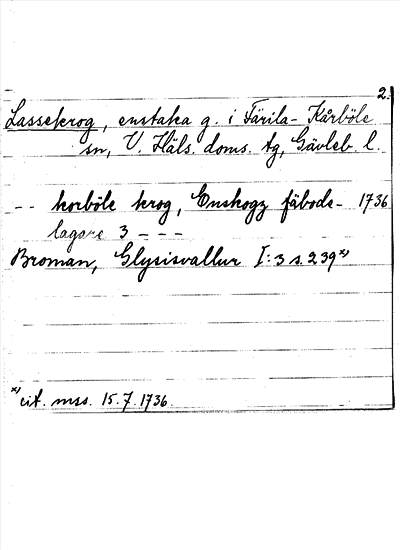 2.
Lassekrog, enstaka g. i Färila-Kårböle
sn, V. Häls. doms. tg, Gävleb. l.
-- korböle krog, Enskogz fäbode- 1736
lagare 3 - - -
Broman, Glysisvallur I:3 s. 239 x)
x) cit. mss. 15.7.1736.